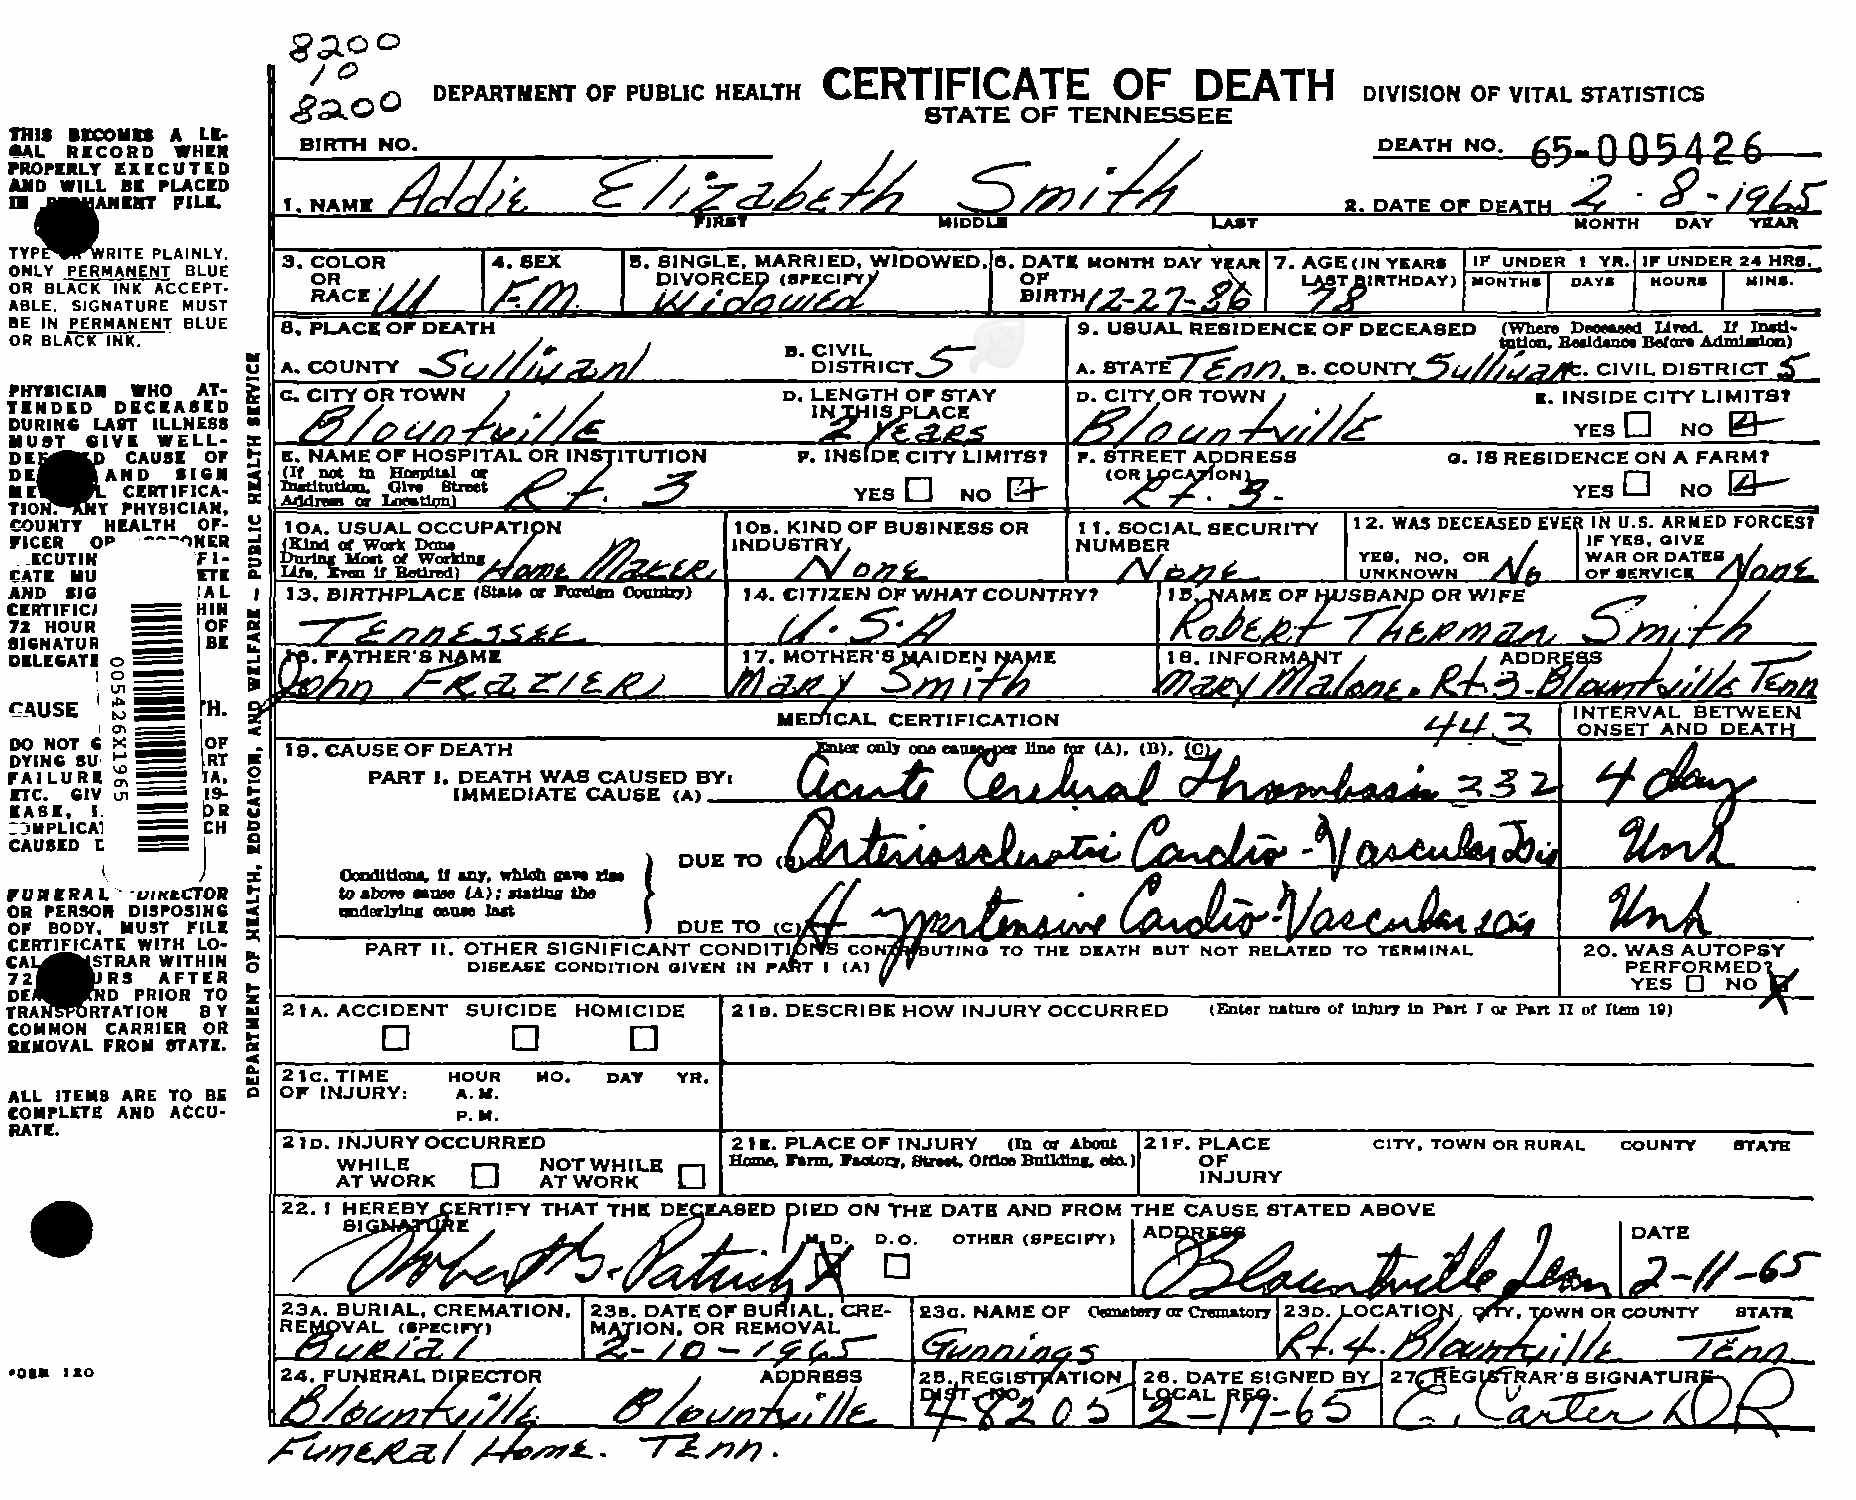 8200
10
8200
DEPARTMENT OF PUBLIC HEALTH CERTIFICATE OF DEATH DIVISION OF VITAL STATISTICS
STATE OF TENNESSEE
BIRTH NO. DEATH NO. 65-005426
1. NAME Addie Elizabeth Smith 2. DATE OF DEATH 2-8-1965
FIRST MIDDLE LAST MONTH DAY YEAR
3. COLOR OR RACE W 4. SEX FM. 5. SINGLE, MARRIED, WIDOWED, DIVORCED (SPECIFY) Widowed 6. DATE OF BIRTH MONTH DAY YEAR 12-27-86 7. AGE (IN YEARS LAST BIRTHDAY) 78 IF UNDER 1 YR. MONTHS DAYS IF UNDER 24 HRS. HOURS MINS.
8. PLACE OF DEATH
A. COUNTY Sullivan B. CIVIL DISTRICT 5
9. USUAL RESIDENCE OF DECEASED (Where Deceased Lived. If Institution, Residence Before Admission)
A. STATE Tenn. B. COUNTY Sullivan C. CIVIL DISTRICT 5
C. CITY OR TOWN Blountville D. LENGTH OF STAY IN THIS PLACE 2 Years
D. CITY OR TOWN Blountville E. INSIDE CITY LIMITS? YES NO
E. NAME OF HOSPITAL OR INSTITUTION (If not in Hospital or Institution, Give Street Address or Location) Rt. 3 F. INSIDE CITY LIMITS? YES NO
F. STREET ADDRESS (OR LOCATION) Rt. 3. G. IS RESIDENCE ON A FARM? YES NO
10A. USUAL OCCUPATION (Kind of Work Done During Most of Working Life, Even if Retired) Home Maker 10B. KIND OF BUSINESS OR INDUSTRY None 11. SOCIAL SECURITY NUMBER None 12. WAS DECEASED EVER IN U.S. ARMED FORCES? YES, NO, OR UNKNOWN No IF YES, GIVE WAR OR DATES OF SERVICE None
13. BIRTHPLACE (State or Foreign Country) Tennessee 14. CITIZEN OF WHAT COUNTRY? U.S.A 15. NAME OF HUSBAND OR WIFE Robert Therman Smith
16. FATHER'S NAME John Frazier 17. MOTHER'S MAIDEN NAME Mary Smith 18. INFORMANT ADDRESS Mary Malone. Rt. 3-Blountville Tenn
MEDICAL CERTIFICATION 443 INTERVAL BETWEEN ONSET AND DEATH
19. CAUSE OF DEATH Enter only one cause per line for (A), (B), (C)
PART I. DEATH WAS CAUSED BY:
IMMEDIATE CAUSE (A) Acute Cerebral Thrombosis 332 4 day
DUE TO (B) Arteriosclerotic Cardio-Vascular Dis Unk
Conditions, if any, which gave rise to above cause (A); stating the underlying cause last
DUE TO (C) Hypertensive Cardio-Vascular Dis Unk
PART II. OTHER SIGNIFICANT CONDITIONS CONTRIBUTING TO THE DEATH BUT NOT RELATED TO TERMINAL DISEASE CONDITION GIVEN IN PART I (A)
20. WAS AUTOPSY PERFORMED? YES NO X
21A. ACCIDENT SUICIDE HOMICIDE 21B. DESCRIBE HOW INJURY OCCURRED (Enter nature of injury in Part I or Part II of Item 19)
21C. TIME OF INJURY: HOUR MO. DAY YR.
A.M.
P.M.
21D. INJURY OCCURRED WHILE AT WORK NOT WHILE AT WORK 21E. PLACE OF INJURY (In or About Home, Farm, Factory, Street, Office Building, etc.) 21F. PLACE OF INJURY CITY, TOWN OR RURAL COUNTY STATE
22. I HEREBY CERTIFY THAT THE DECEASED DIED ON THE DATE AND FROM THE CAUSE STATED ABOVE
SIGNATURE Robert Patrick M.D. X D.O. OTHER (SPECIFY) ADDRESS Blountville Tenn DATE 2-11-65
23A. BURIAL, CREMATION, REMOVAL (SPECIFY) Burial 23B. DATE OF BURIAL, CREMATION, OR REMOVAL 2-10-1965 23C. NAME OF Cemetery or Crematory Gunnings 23D. LOCATION, CITY, TOWN OR COUNTY STATE Rt. 4. Blountville Tenn
24. FUNERAL DIRECTOR ADDRESS Blountville Blountville
25. REGISTRATION DIST. NO. 48205 26. DATE SIGNED BY LOCAL REG. 2-17-65 27. REGISTRAR'S SIGNATURE E. Carter DR
Funeral Home. Tenn.
THIS BECOMES A LE-
GAL RECORD WHEN
PROPERLY EXECUTED
AND WILL BE PLACED
IN FILE.
TYPE WRITE PLAINLY.
ONLY PERMANENT BLUE
OR BLACK INK ACCEPT-
ABLE. SIGNATURE MUST
BE IN PERMANENT BLUE
OR BLACK INK.
PHYSICIAN WHO AT-
TENDED DECEASED
DURING LAST ILLNESS
MUST GIVE WELL-
CAUSE OF
AND SIGN
CERTIFICA-
TION. ANY PHYSICIAN,
COUNTY HEALTH OF-
FICER OR
72 HOUR OF
BE
CAUSE
DO NOT OF
DYING
CAUSED
005426X1965
FUNERAL DIRECTOR
OR PERSON DISPOSING
OF BODY, MUST FILE
CERTIFICATE WITH LO-
CAL WITHIN
72 AFTER
AND PRIOR TO
TRANSPORTATION BY
COMMON CARRIER OR
REMOVAL FROM STATE.
ALL ITEMS ARE TO BE
COMPLETE AND ACCU-
RATE.
FORM 120
DEPARTMENT OF HEALTH, EDUCATION, AND WELFARE - PUBLIC HEALTH SERVICE